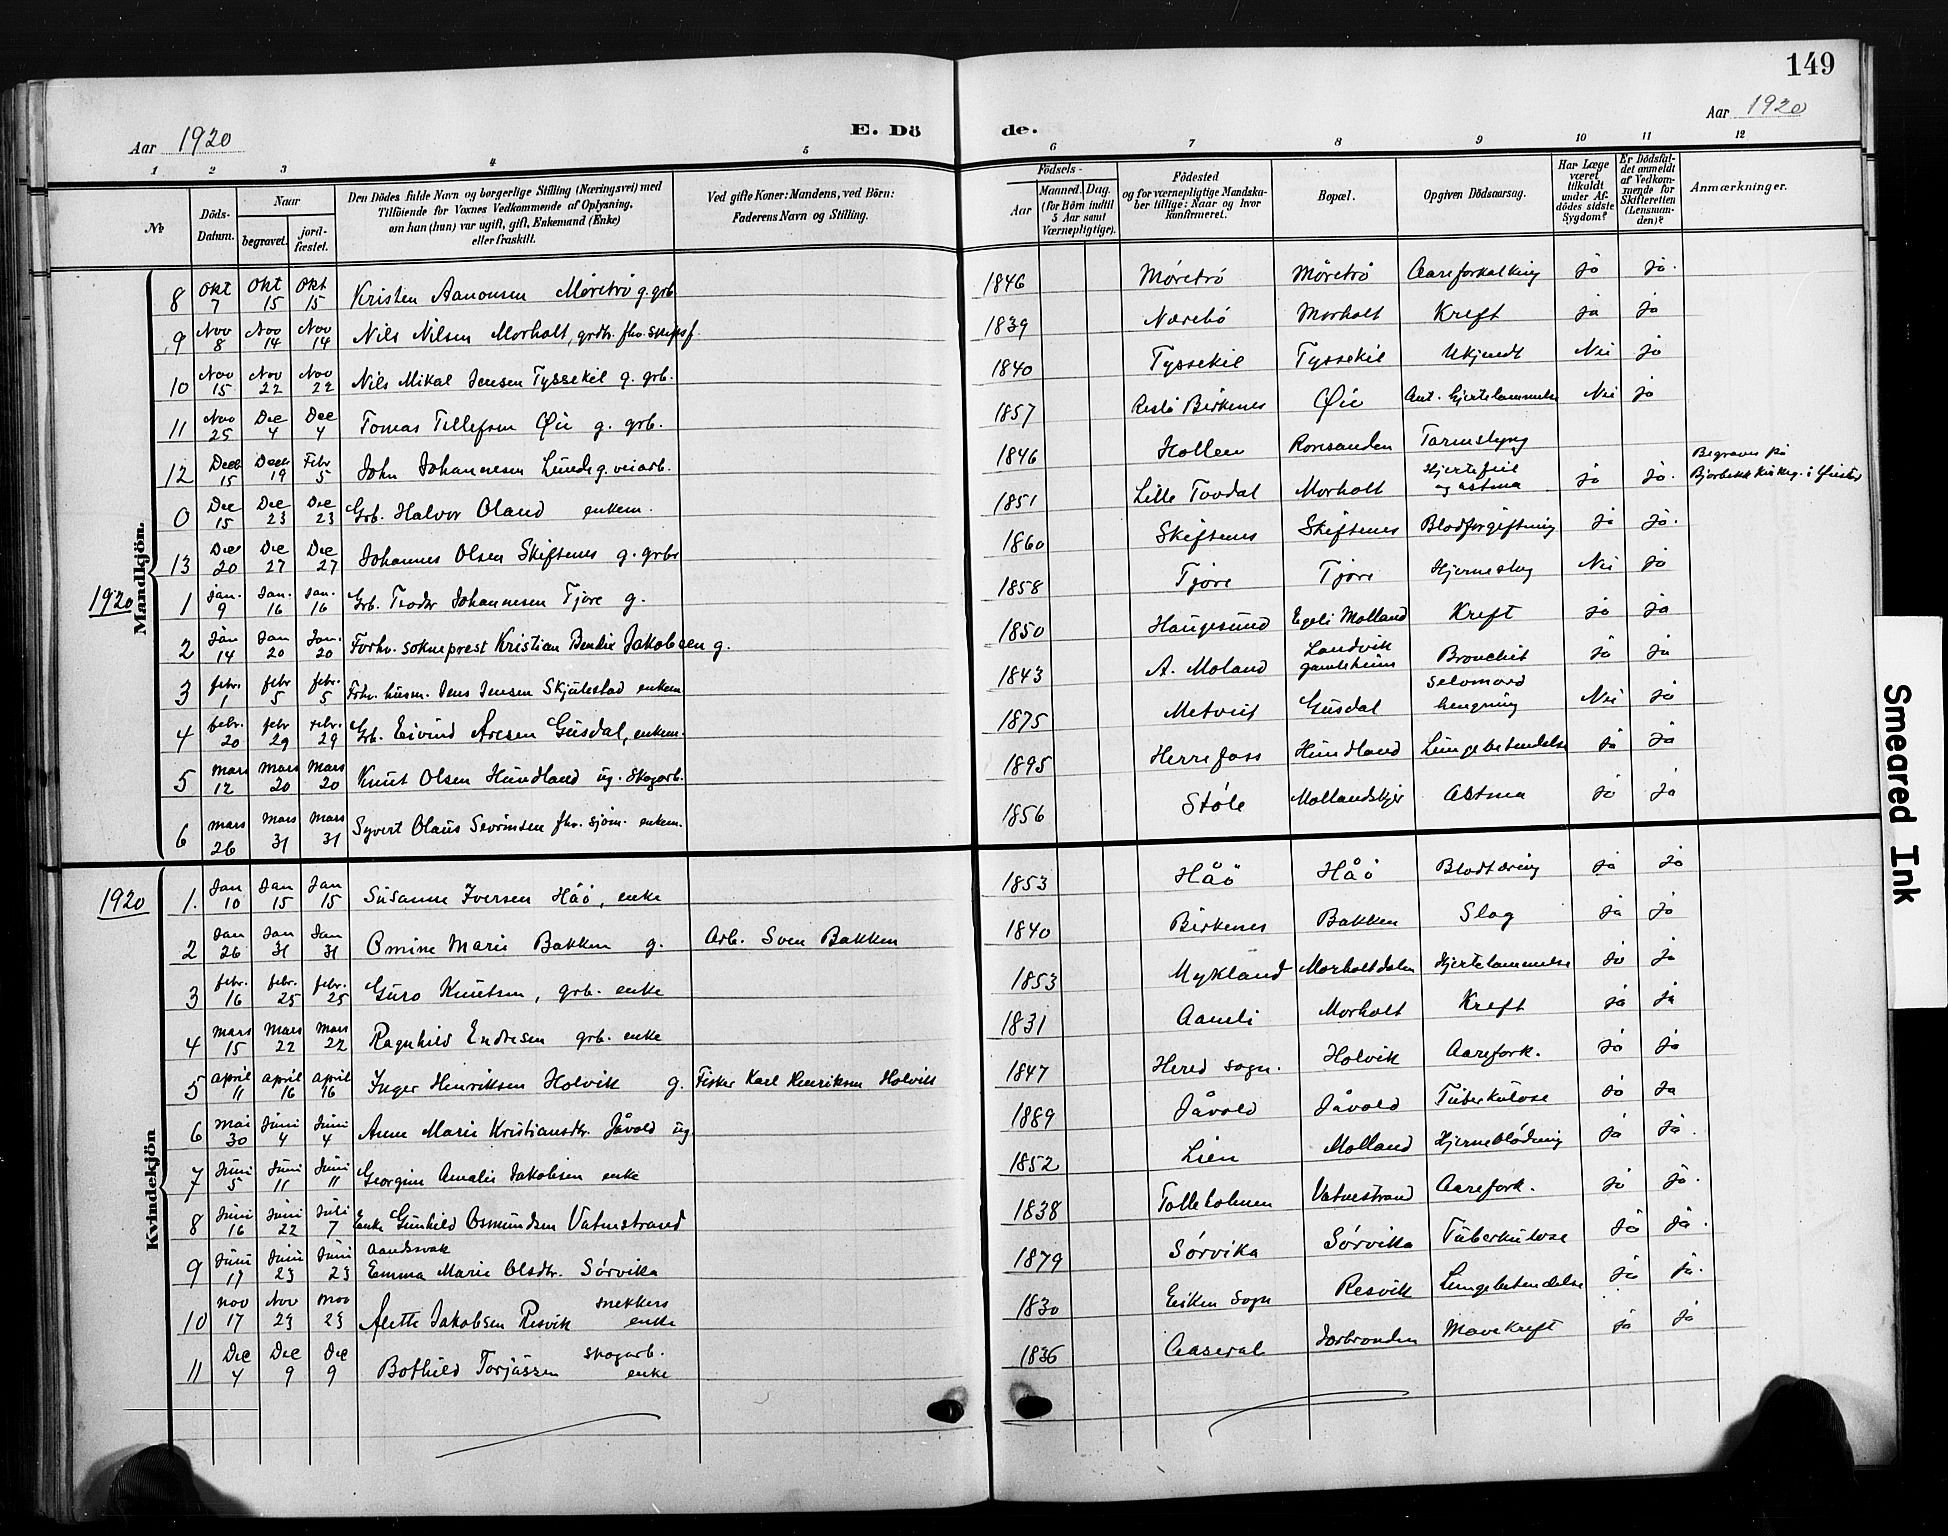 149
Aar 1920 E. Dö de. Aar 1920
1 2 3 4 5 6 7 8 9 10 11 12
№
Döds-Datum.
Naar
begravet.
jord-fæstet.
Den Dödes fulde Navn og borgerlige Stilling (Næringsvei) med
Tilföiende for Voxnes Vedkommende af Oplysning,
om han (hun) var ugift, gift, Enkemand (Enke)
eller fraskilt.
Ved gifte Koner: Mandens, ved Börn:
Faderens Navn og Stilling.
Födsels-
Aar
Maaned. Dag.
(for Börn indtil
5 Aar samt
Værnepligtige).
Födested
og for værnepligtige Mandska-
ber tillige: Naar og hvor
konfirmeret.
Bopæl.
Opgiven Dödsaarsag.
Har Læge
været
tilkaldt
under Af-
dödes sidste
Sygdom?
Er Dödsfal-
det anmeldt
af Vedkom-
mende for
Skifteretten
(Lensman-
den)?
Anmærkninger.
Mandkjön.
8 Okt 7 Okt 15 Okt 15 Kristen Aanonsen Møretrø g. grb 1846 Møretrø Møretrø Aareforkalkning ja ja.
9 Nov 8 Nov 14 Nov 14 Nils Nilsen Morholt, grdbr. fhv. skipsf. 1839 Nærebø Morholt Kreft ja ja
10 Nov 15 Nov 22 Nov 22 Nils Mikal Jensen Tyssekil g. grb. 1840 Tyssekil Tyssekil Ukjendt Nei ja
11 Nov 25 Dec 4 Dec 4 Tomas Tellefsen Øie g. grb. 1857 Birkenes Øie Ant. Hjertelammelse Nei ja
12 Decb 15 Decb 19 Febr 5 John Johannesen Lunde g. veiarb. 1846 Hollen Roresanden Tarmslyng Begraves på
0 Dec 15 Dec 23 Dec 23 Grb. Halvor Oland enkem. 1851 Lille Tovdal Morholt Hjertefeil og astma ja ja.
13 Dec 20 Dec 27 Dec 27 Johannes Olsen Skiftenes g. grbr 1860 Skiftenes Skiftenes Blodforgiftning ja ja.
1920
1 Jan. 9 Jan. 16 Jan. 16 Grb. Teodor Johannesen Tjore g. 1858 Tjore Tjore Hjerneslag Nei ja
2 Jan 14 Jan 20 Jan. 20 Forhv. sokneprest Kristian Bendix Jakobsen g. 1850 Haugesund Egeli Molland Kreft ja ja
3 febr. 1 febr 5 febr. 5 Frhv. husm. Jens Jensen Skjulestad enkem 1843 A. Moland Landvik gamleheim Bronchit ja ja
4 febr. 20 febr 29 febr. 29 Grb. Eivind Aresen Gusdal, enkem. 1875 Metveit Gusdal Selvmord hengning Nei ja
5 Mars 12 Mars 20 Mars 20 Knut Olsen Hundland ug. skogarb. 1895 Herrefoss Hundland Lungebetendelse ja ja
6 Mars 26 Mars 31 Mars 31 Syvert Olaus Severinsen fhv. sjøm. enkem. 1856 Støle Mollandskjer Astma ja ja
1920
Kvindekjön
1. Jan 10 Jan 15 Jan 15 Susanne Iversen Håö, enke 1853 Håö Håö Blodtæring ja ja
2 Jan 26 Jan 31 Jan 31 Omine Marie Bakken g. Arb. Sven Bakken 1840 Birkenes Bakken Slag ja ja
3 febr. 16 febr. 25 febr. 25 Guro Knutsen, grb. enke 1853 Mykland Morholtdalen Hjertelammelse ja ja
4 Mars 15 Mars 22 Mars 22 Ragnhild Endresen grb. enke 1831 Aamli Morholt Kreft ja ja
5 April 11 April 16 April 16 Inger Henriksen Holvik g. Fisker Karl Henriksen Holvik 1847 Hered sogn. Holvik Aarefork. ja ja
6 Mai 30 Juni 4 Juni 4 Anne Marie Kristiansdtr. Jåvold ug. 1889 Jåvold Jåvold Tuberkulose ja ja
7 Juni 5 Juni 11 Juni 11 Georgine Amalie Jakobsen enke 1852 Lien Molland Hjerneblödning ja ja.
8 Juni 16 Juni 22 Juli 7 Enke Gunhild Osmundsen Vatnestrand 1838 Tolleholmen Vatnestrand Aarefork. ja ja.
9 Juni 17 Juni 23 Juni 23 Aandssvak Emma Marie Olsdtr. Sørvika 1879 Sørvika Sørvika Tuberkulose ja ja.
10 Nov 17 Nov 23 Nov 23 Alette Jakobsen Resvik snekkers enke 1830 Eiken Sogn Resvik Lungebetendelse ja ja.
11 Dec 4 Dec 9 Dec 9 Bothild Torjussen skogarb. enke 1836 Aaseral Mavekreft ja ja
Smeared Ink